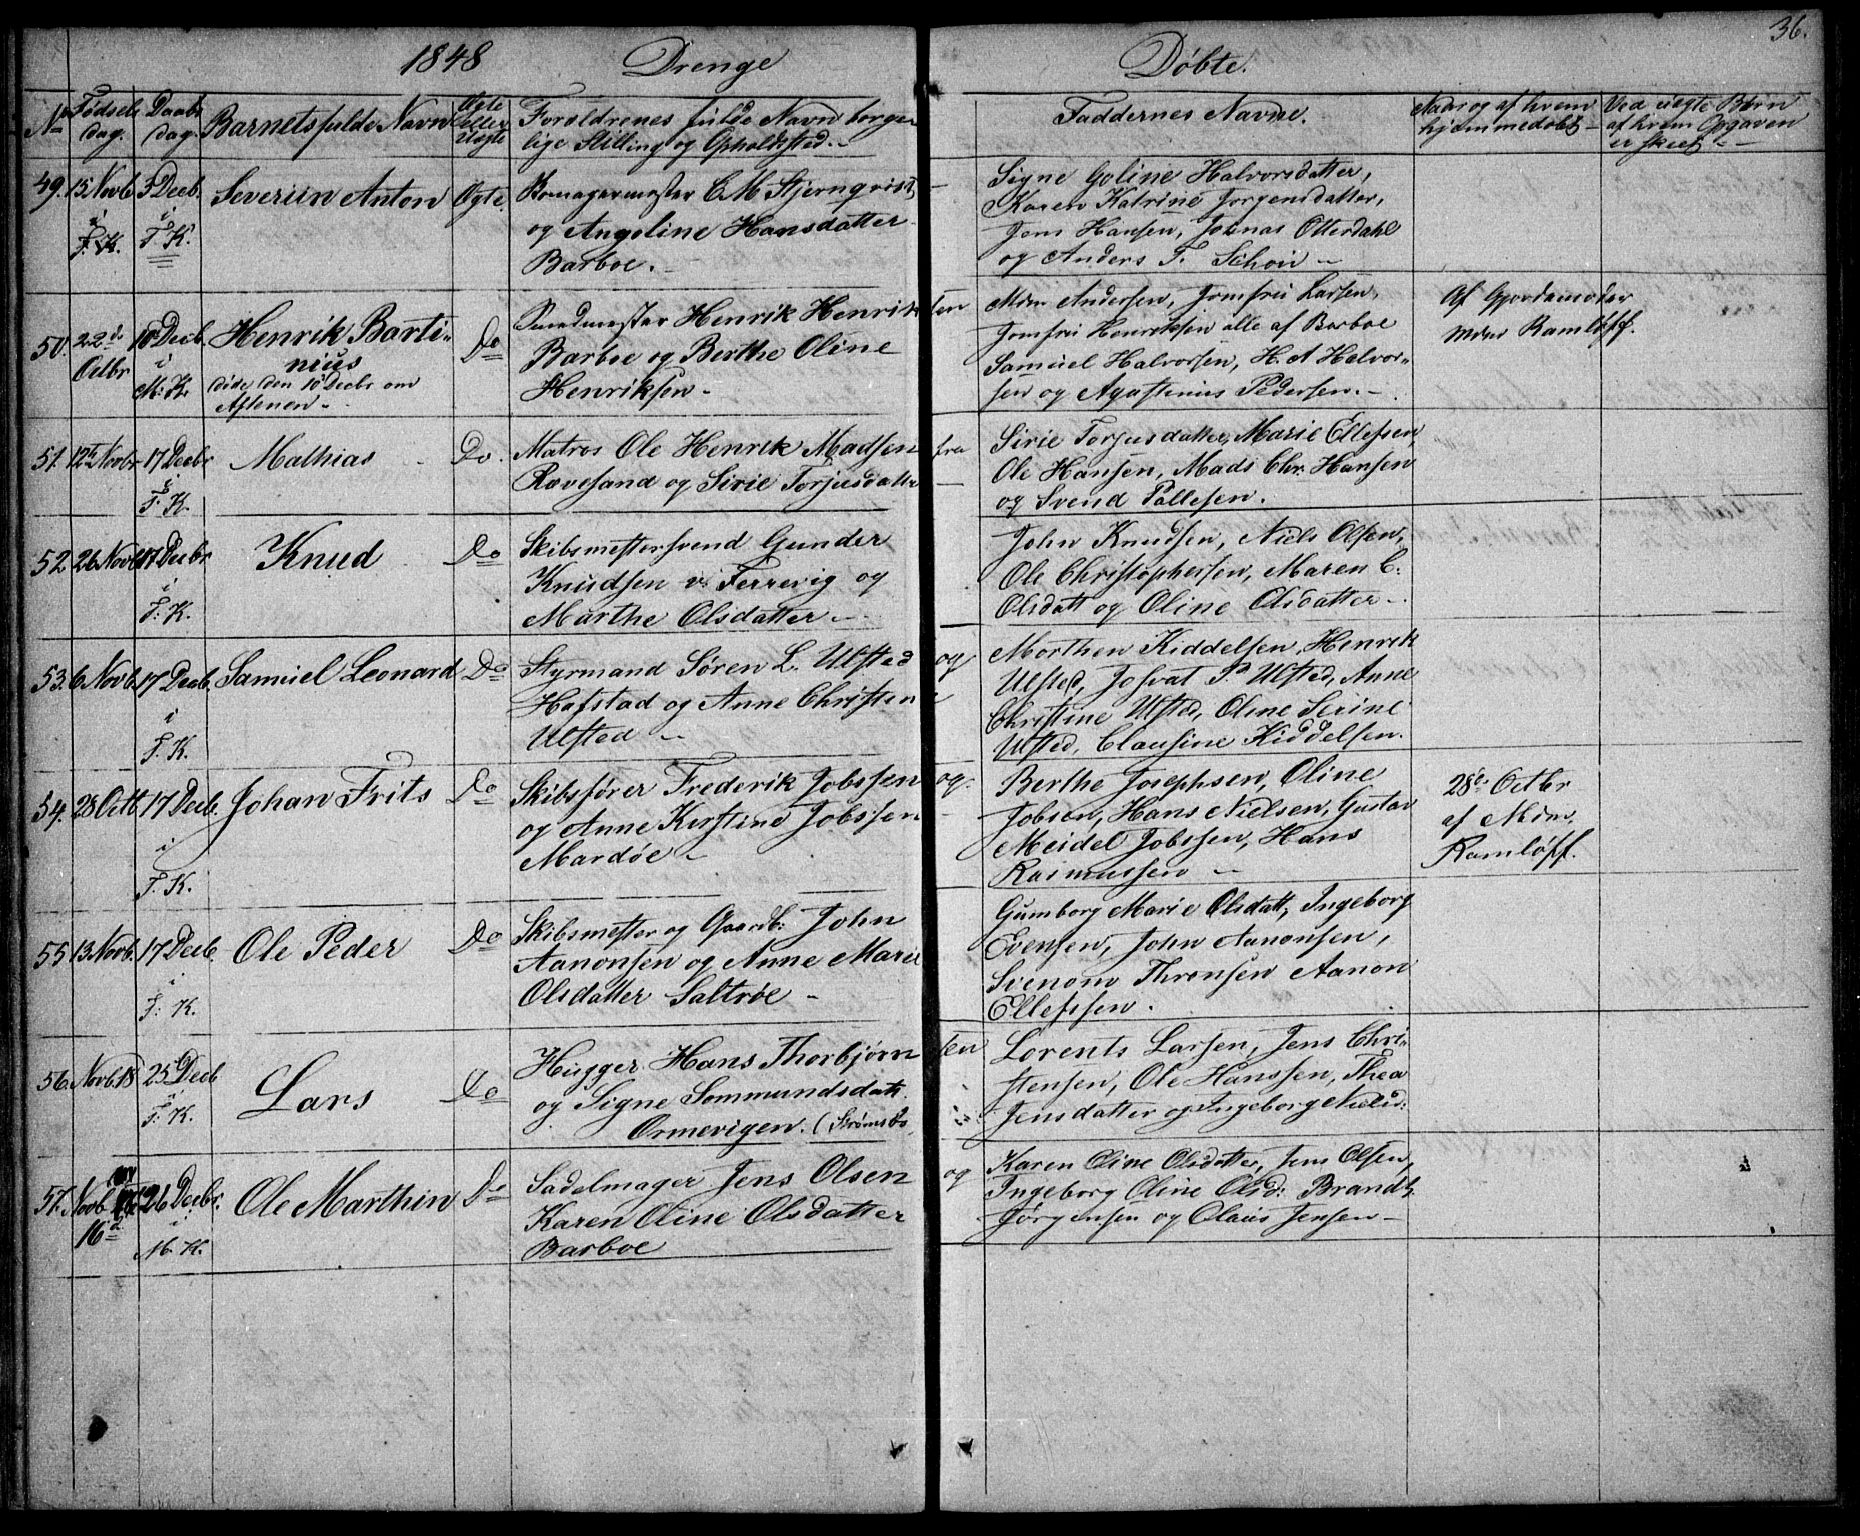 36.
1848 Drenge Døbte.
No Fødsels dag. Daabs dag. Barnets fulde Navn Ægte eller Uægte Forældrenes fulde Navn borger
lige Stilling og Opholdssted.
Faddernes Navne.
Naar og af hvem
hjemmedøbt
Ved uægte Børn
af hvem Opgaven
er skeet
49. 15 Novb. 3 Decb. i T. K. Severin Anton Ægte.
C. M. Stjernqvist
og Angoline Hansdatter
Barboe.
Signe Goline Halvorsdatter,
Karen Katrine Jørgensdatter,
Jens Hansen, Jonas Otterdahl
og Anders T. Schøn
50. 22 Octbr 10 Decb. i M. K. Henrik Barti-
nius
døde den 10 Decbr om
Aftenen
Do
Smedmester Henrik Henriksen
Barboe og Berthe Oline
Henriksen
Mdm Andersen, Jomfru Larsen,
Jomfru Henriksen alle af Barboe
Samuel Halvorsen, H. A. Halvor-
sen og Agastinius Pedersen.
Af Gjordemoder
Mdm Ramløff.
51. 12te Novbr 17 Decbr i T. K. Mathias Do.
Matros Ole Henrik Madsen fra
Rævesand og Sirie Torjusdatter
Sirie Torjusdatter, Marie Ellefsen
Ole Hansen, Mads Chr. Hansen
og Svend Pallesen.
52. 26 Novb. 17 Decbr i T. K. Knud Do
Skibsmestersvend Gunder
Knudsen v. Ferrevig og
Marthe Olsdatter
John Knudsen, Niels Olsen,
Ole Christophersen, Maren C.
Olsdatt og Oline Olsdatter
53. 6 Novb. 17 Decb. i T. K. Samuel Leonard Do
Styrmand Søren L. Ulsted og
Hafstad og Anne Christine
Ulsted
Morthen Kiddelsen, Henrik
Ulsted, Josvat P. Ulsted, Anne
Christine Ulsted, Oline Serine
Ulsted, Clausine Kiddelsen.
54. 28 Octb 17 Decb. i T. K. Johan Frits Do
Skibsfører Frederik Jobssen og
og Anne Kirstine Jobssen
Mardøe
Berthe Josephsen, Oline
Jobsen, Hans Nielsen, Gustav
Meidel Jobssen, Hans
Rasmussen
28de Octbr
af Mdm.
Ramløff.
55 13 Novb. 17 Decb. i T. K. Ole Peder Do
Skibsmester og Gaardb. John
Aanonsen og Anne Marie
Olsdatter Saltrøe
Gumborg Marie Olsdatt, Ingeborg
Evensen, John Aanonsen,
Thronsen Aanon
Ellefssen.
56. Novb. 18 25 Decb i T. K. Lars Do
Hugger Hans Thorbjørnsen
og Signe Sommundsdatt.
Ormevigen. (Strømsbo
Lorents Larsen, Jens Chri-
stensen, Ole Hanssen, Thea
Jensdatter og Ingeborg Nielsd:
57. Novb. 16d 26 Decbr. i M. K. Ole Marthin Do
Sadelmager Jens Olsen og
Karen Oline Olsdatter
Barboe
Karen Oline Olsdatter, Jens Olsen,
Ingeborg Oline Olsd: Brandt
Jørgensen og Claus Jensen